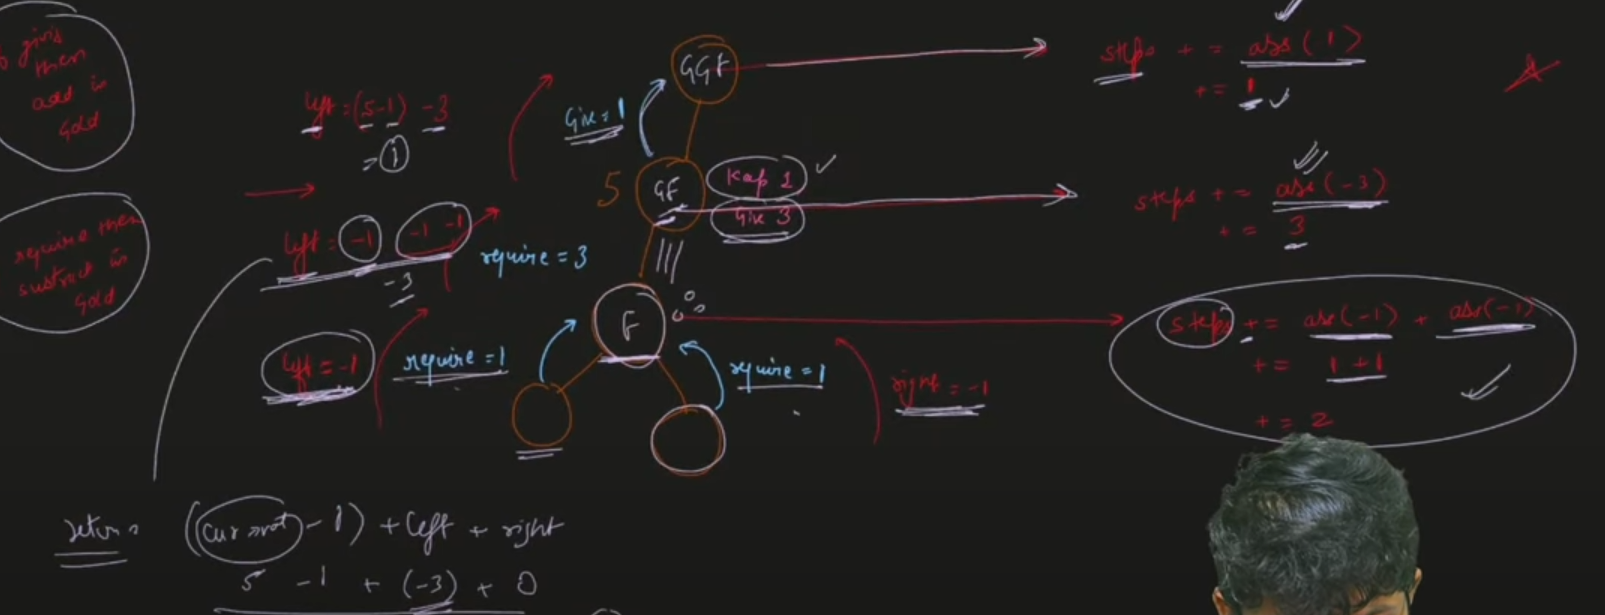 gives
then
add in
gold
require then
substract in
gold
left = (5-1) -3
= 1
left = -1 -1 -1
-3
left = -1
require = 1
require = 3
Give = 1
GGF
5
GF
Keep 1
Give 3
F
require = 1
right = -1
steps + = abs (1)
+ = 1
steps + = abs (-3)
+ = 3
steps + = abs (-1) + abs (-1)
+ = 1 + 1
+ = 2
return (curr→val - 1) + left + right
5 -1 + (-3) + 0